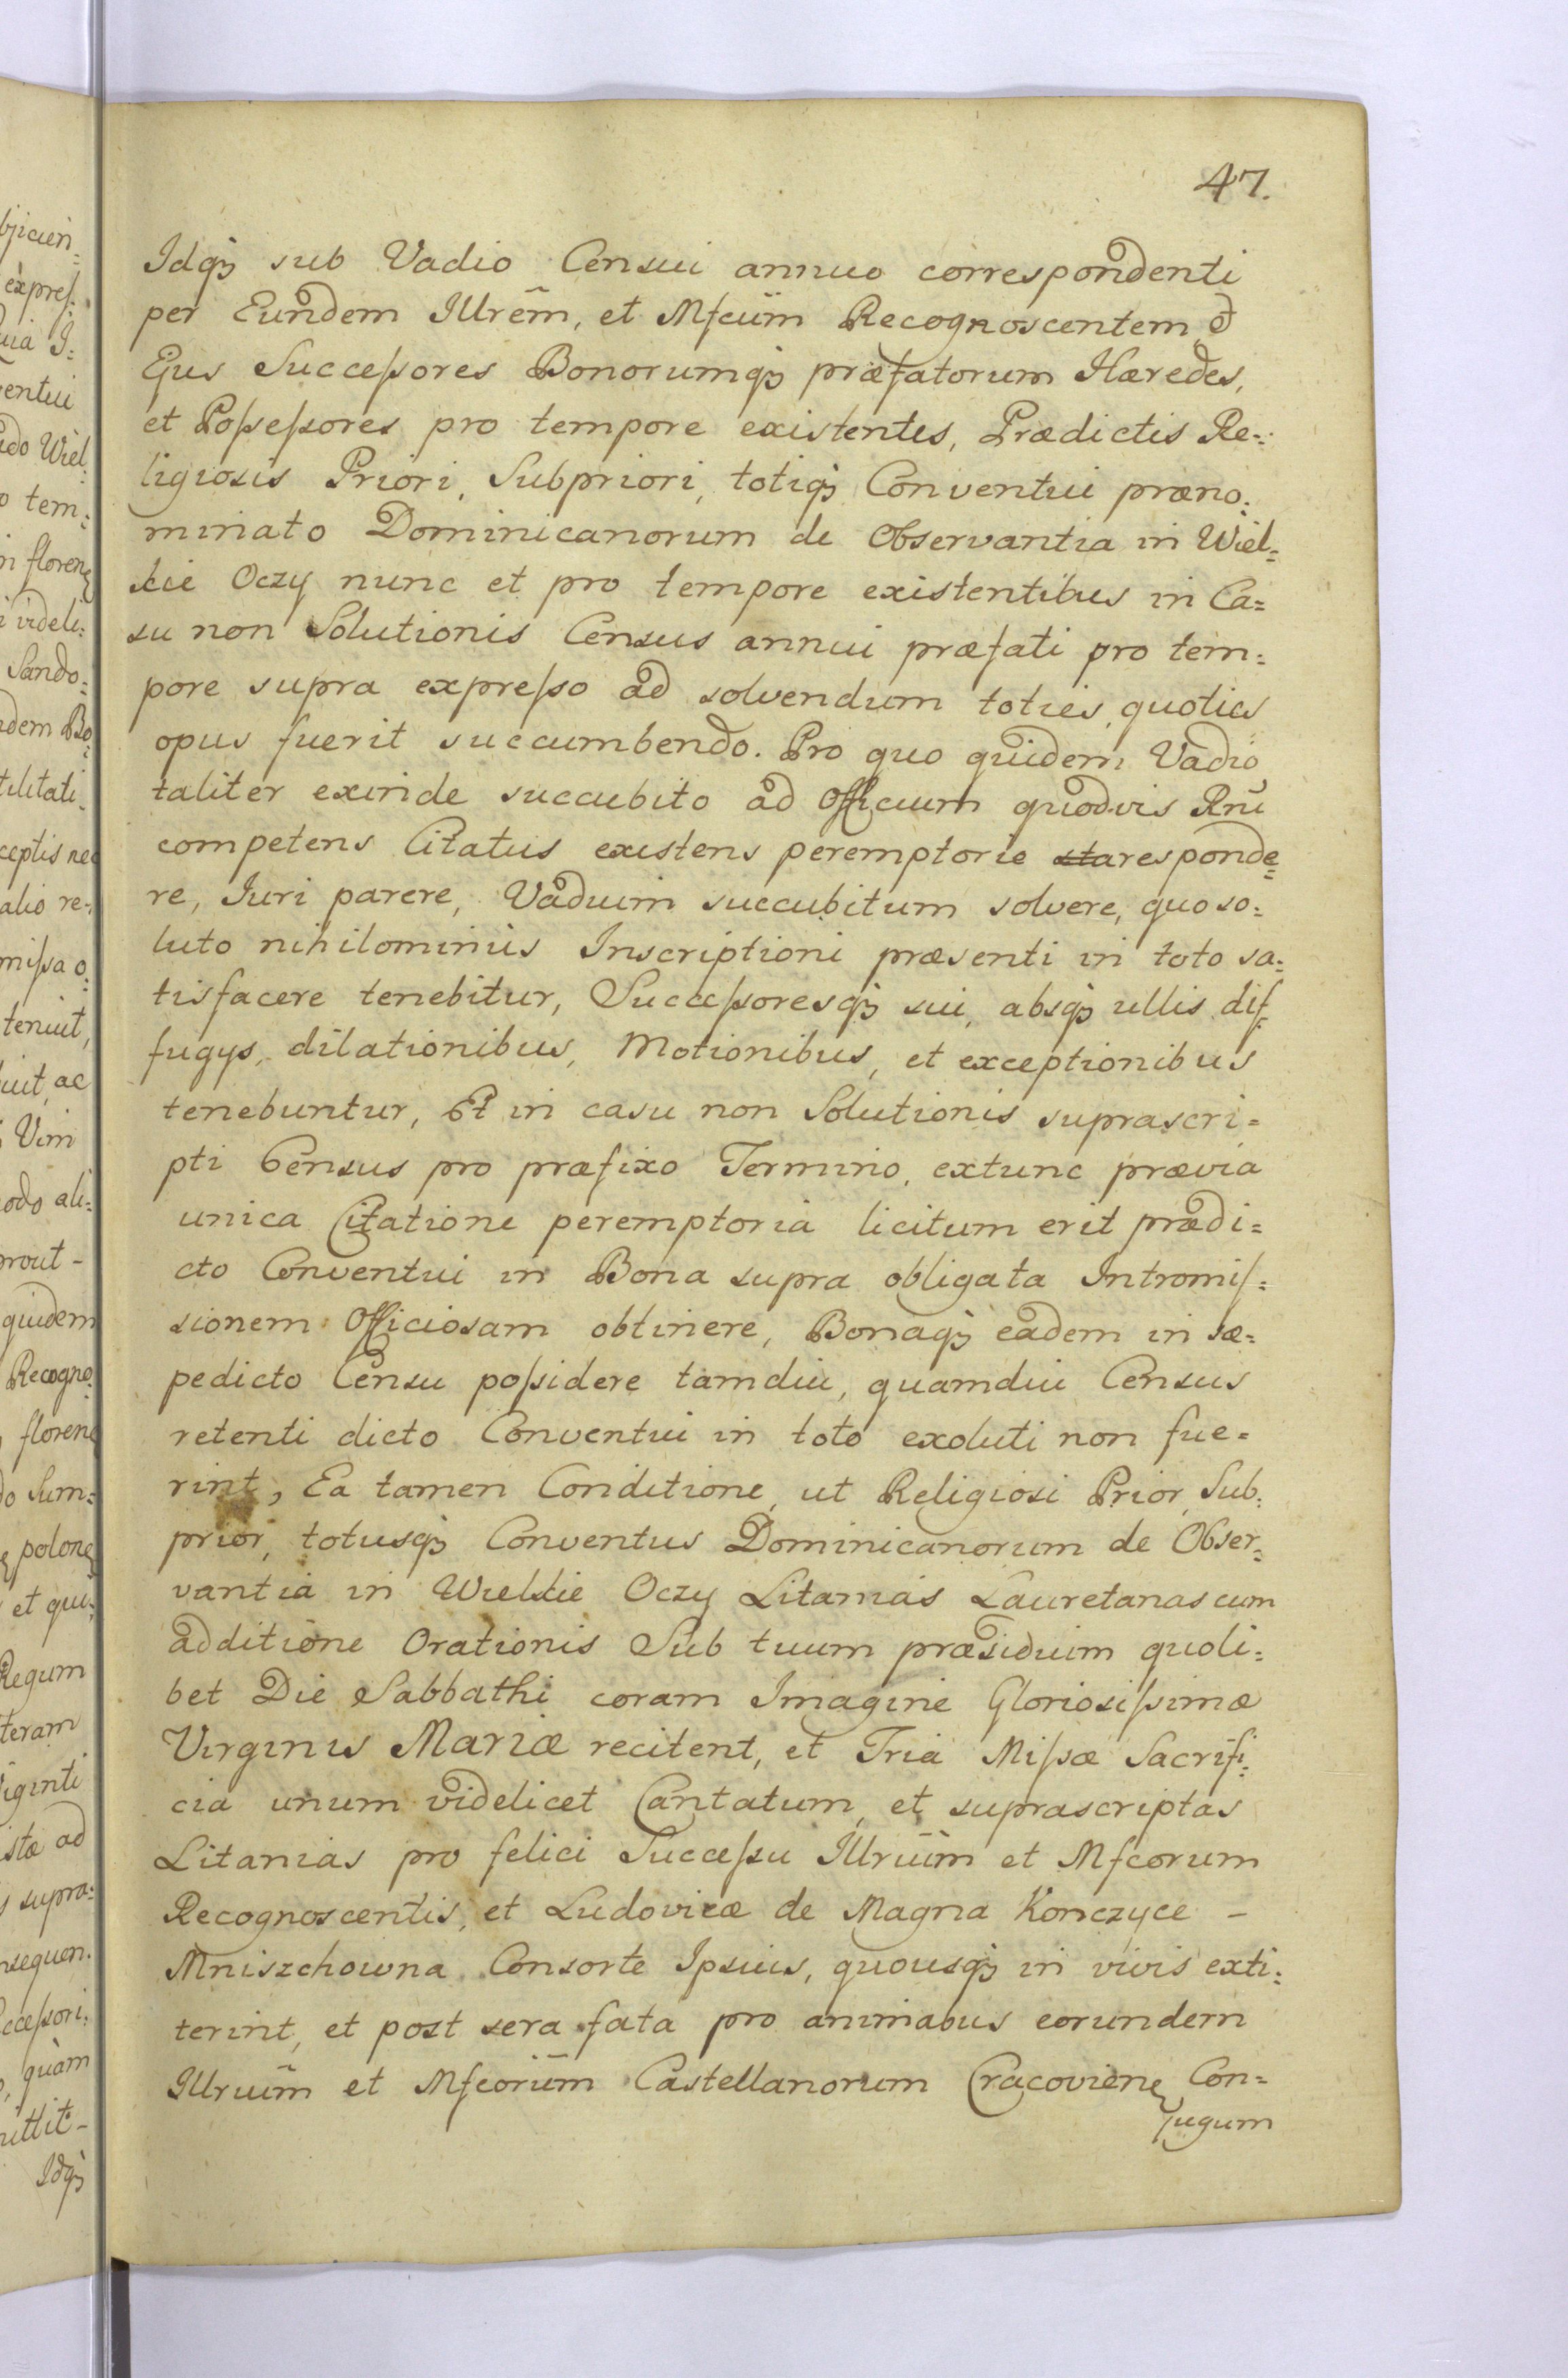 47.
Idq₃ sub Vadio Censui annuo correspondenti
per Eundem Illrẽm, et Mfcũm Recognoscentem et
Ejus Succeſsores Bonorumq₃ præfatorum Hæredes,
et Poſseſsores pro tempore existentes, Prædictis Re=
ligiosis Priori, Subpriori, totiq₃ Conventui præno=
minato Dominicanorum de Observantia in Wiel=
kie Oczy nunc et pro tempore existentibus in Ca=
su non Solutionis Census annui præfati pro tem=
pore supra expreſso ad solvendum toties, quoties
opus fuerit succumbendo. Pro quo quidem Vadio
taliter exinde succubito ad Officium quodvis Rñi
competens Citatus existens peremptorie sta responde=
re, Iuri parere, Vadium succubitum solvere, quo so=
luto nihilominus Inscriptioni præsenti in toto sa=
tisfacere tenebitur, Succeſsoresq₃ sui, absq₃ ullis dif=
fugys, dilationibus, Motionibus, et exceptionibus
tenebuntur, Et in casu non Solutionis suprascri=
pti Census pro præfixo Termino, extunc prævia
unica Citatione peremptoria licitum erit prædi=
cto Conventui in Bona supra obligata Intromiſ=
sionem Officiosam obtinere, Bonaq₃ eadem in sæ=
pedicto Censu poſsidere tamdiu, quamdiu Census
retenti dicto Conventui in toto exoluti non fue=
rint, Ea tamen Conditione, ut Religiosi Prior, Sub=
prior, totusq₃ Conventus Dominicanorum de Obser=
vantia in Wielkie Oczy Litanias Lauretanas cum
additione Orationis Sub tuum præsidium quoli=
bet Die Sabbathi coram Imagine Gloriosiſsimæ
Virginis Mariæ recitent, et Tria Miſsæ Sacrifi=
cia unum videlicet Cantatum, et suprascriptas
Litanias pro felici Succeſsu Illrium et Mfcorum
Recognoscentis, et Ludovicæ de Magna Konczyce -
Mniszchowna Consorte Ipsius, quousq₃ in vivis exti=
terint, et post sera fata pro animabus eorundem
Illriũm et Mfcorũm Castellanorum Cracovien Con=
jugum